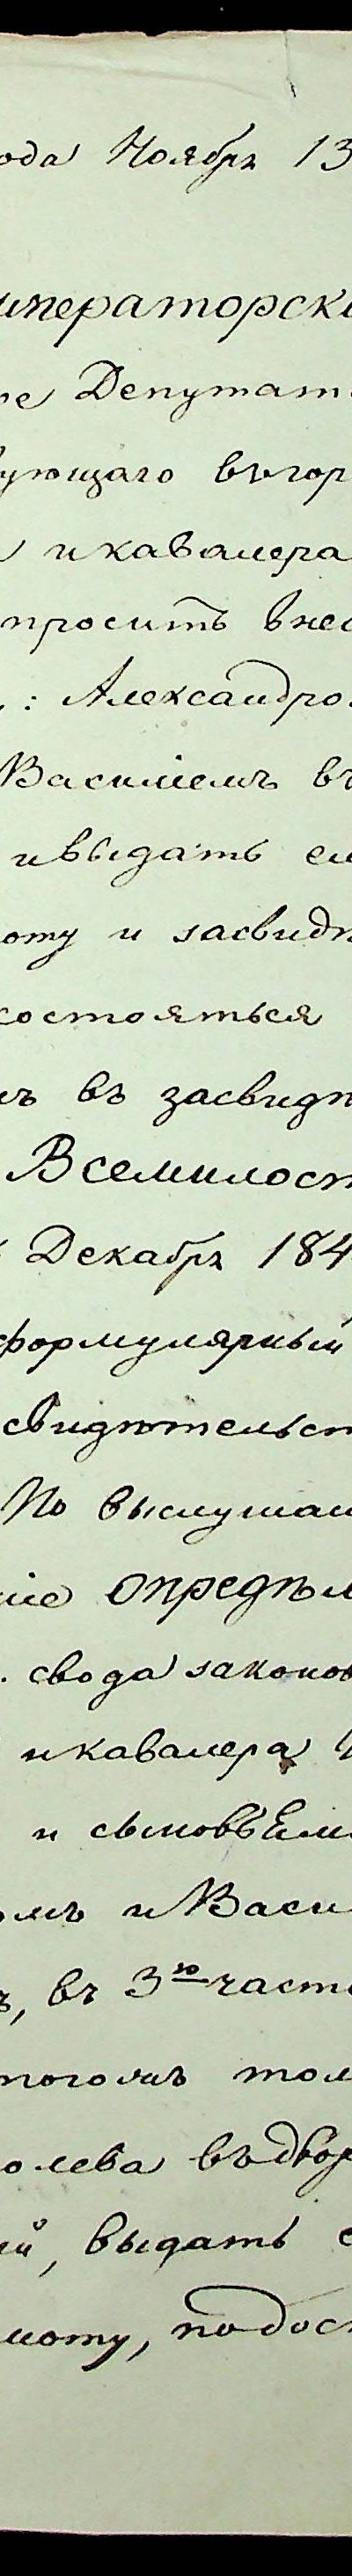 ода Ноября 13
императорск
ре Депутат
ующаго въгор
икавалера
проситъ внес
: Александро
Василіемъ въ
ивыдать ем
оту и засвидѣ
состояться
мъ въ засвидѣ
Всемилост
Декабря 184
формулярный
свидѣтельст
По выслушан
ніе Опредѣл
. свода законов
икавалера
и сыновьями
омъ иВаси
ъ, въ 3ю часть
потомъ тол
олева въдвор
ій, выдать е
моту, подос